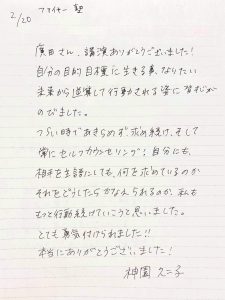 2/20 ファイヤー塾
廣田さん、講演ありがとうございました!
自分の目的目標に生きる事、なりたい
未来から逆算して行動される姿に背すじが
のびました。
つらい時であきらめず求め続け、そして
常にセルフカウンセリング!自分にも、
相手を主語にしても、何を求めているのか
それをどうしたらかなえられるのか、私も
もっと行動続けていこうと思いました。
とても勇気付けられました!!
本当にありがとうございました!
神園